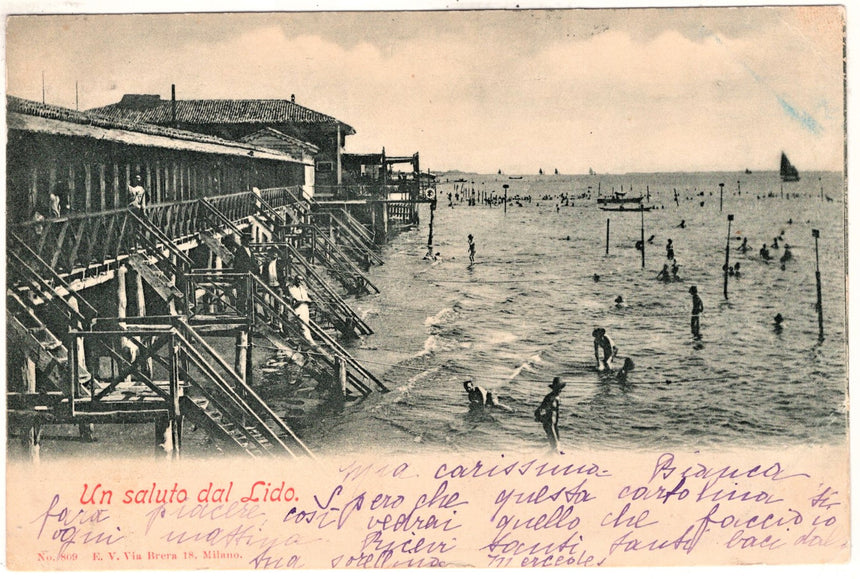 Mia carissima Bianca
Un saluto dal Lido.
Spero che questa cartolina ti
farà piacere così vedrai quello che faccio io
ogni mattina. Ricevi tanti tanti baci dalla
tua sorellina Mercedes
No. 809 E. V. Via Brera 18, Milano.